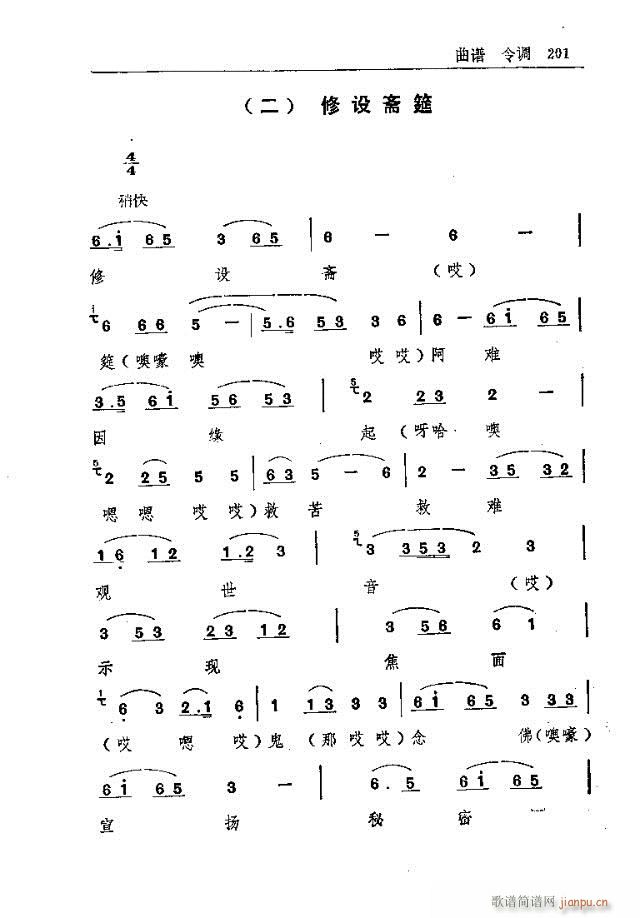 曲谱 令调 201
（二） 修设斋筵
4/4
稍快
6.i 65 3 65 | 6 — 6 — |
修 设 斋 （哎）
6 66 5 — | 5.6 53 3 6 | 6 — 6i 65 |
筵（噢嚎 噢 哎哎）阿 难
3.5 6i 56 53 | 2 23 2 — |
因 缘 起（呀哈 噢
2 25 5 5 | 63 5 — 6 | 2 — 35 32 |
嗯嗯 哎哎）救苦 救 难
16 12 1.2 3 | 3 353 2 3 |
观 世 音 （哎）
3 53 23 12 | 3 56 6 1 |
示 现 焦 面
6 3 2.1 6 | 1 13 3 3 | 6i 65 3 33 |
（哎 嗯 哎）鬼（那 哎哎）念 佛（噢嚎）
6i 65 3 — | 6. 5 6i 65 |
宣 扬 秘 密
歌谱简谱网
jianpu.cn